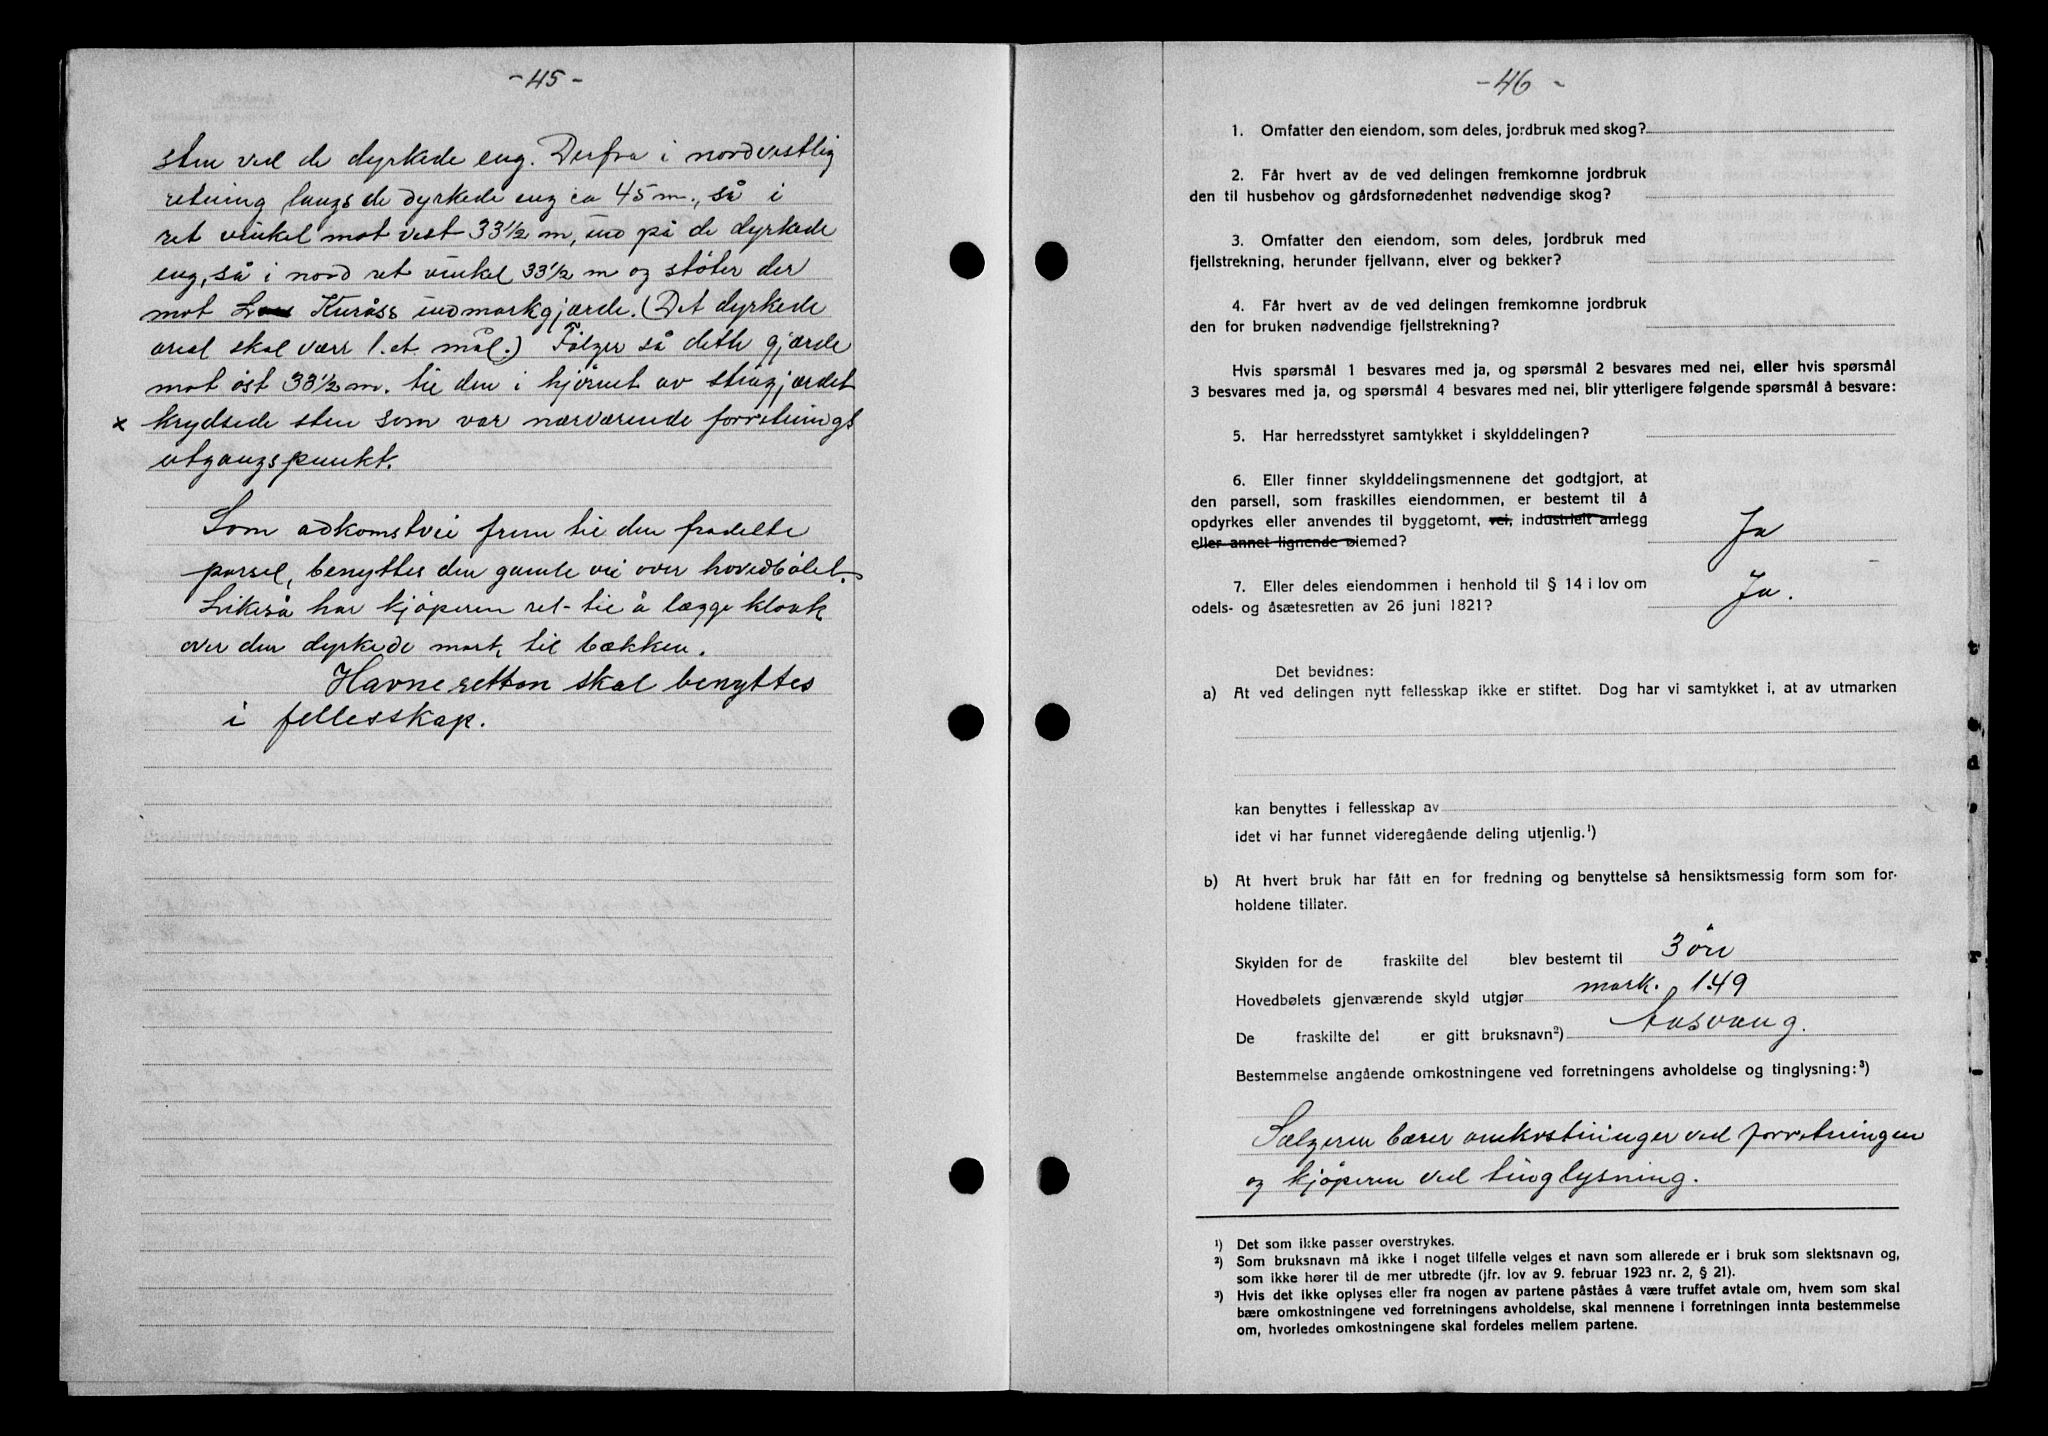 - 45 -
sten ved de dyrkede eng. Derfra i nordvestlig
retning langs de dyrkede eng ca 45 m., så i
ret vinkel mot vest 33 1/2 m, ind på de dyrkede
eng, så i nord ret vinkel 33 1/2 m og støter der
mot Kuråss indmarkgjærde. (Det dyrkede
areal skal være 1. et mål.) Følger så dette gjærde
mot øst 33 1/2 m. til den i hjørnet av stengjærdet
x krydsede sten som var nærværende forretnings
utgangspunkt.
Som adkomstvei frem til den fradelte
parsel, benyttes den gamle vei over hovedbølet.
Likeså har kjøperen ret til å lægge kloak
over den dyrkede mark til bækken.
Havneretten skal benyttes
i fellesskap.
- 46 -
1. Omfatter den eiendom, som deles, jordbruk med skog?
2. Får hvert av de ved delingen fremkomne jordbruk
den til husbehov og gårdsfornødenhet nødvendige skog?
3. Omfatter den eiendom, som deles, jordbruk med
fjellstrekning, herunder fjellvann, elver og bekker?
4. Får hvert av de ved delingen fremkomne jordbruk
den for bruken nødvendige fjellstrekning?
Hvis spørsmål 1 besvares med ja, og spørsmål 2 besvares med nei, eller hvis spørsmål
3 besvares med ja, og spørsmål 4 besvares med nei, blir ytterligere følgende spørsmål å besvare:
5. Har herredsstyret samtykket i skylddelingen?
6. Eller finner skylddelingsmennene det godtgjort, at
den parsell, som fraskilles eiendommen, er bestemt til å
opdyrkes eller anvendes til byggetomt, vei, industrielt anlegg
eller annet lignende øiemed? Ja
7. Eller deles eiendommen i henhold til § 14 i lov om
odels- og åsætesretten av 26 juni 1821? Ja.
Det bevidnes:
a) At ved delingen nytt fellesskap ikke er stiftet. Dog har vi samtykket i, at av utmarken
kan benyttes i fellesskap av
idet vi har funnet videregående deling utjenlig.¹)
b) At hvert bruk har fått en for fredning og benyttelse så hensiktsmessig form som for-
holdene tillater.
Skylden for de fraskilte del blev bestemt til 3 øre
Hovedbølets gjenværende skyld utgjør mark. 1.49
De fraskilte del er gitt bruksnavn²) Aasvang.
Bestemmelse angående omkostningene ved forretningens avholdelse og tinglysning:³)
Sælgeren bærer omkostninger ved forretningen
og kjøperen ved tinglysning.
¹) Det som ikke passer overstrykes.
²) Som bruksnavn må ikke i noget tilfelle velges et navn som allerede er i bruk som slektsnavn og,
som ikke hører til de mer utbredte (jfr. lov av 9. februar 1923 nr. 2, § 21).
³) Hvis det ikke oplyses eller fra nogen av partene påståes å være truffet avtale om, hvem som skal
bære omkostningene ved forretningens avholdelse, skal mennene i forretningen innta bestemmelse
om, hvorledes omkostningene skal fordeles mellem partene.